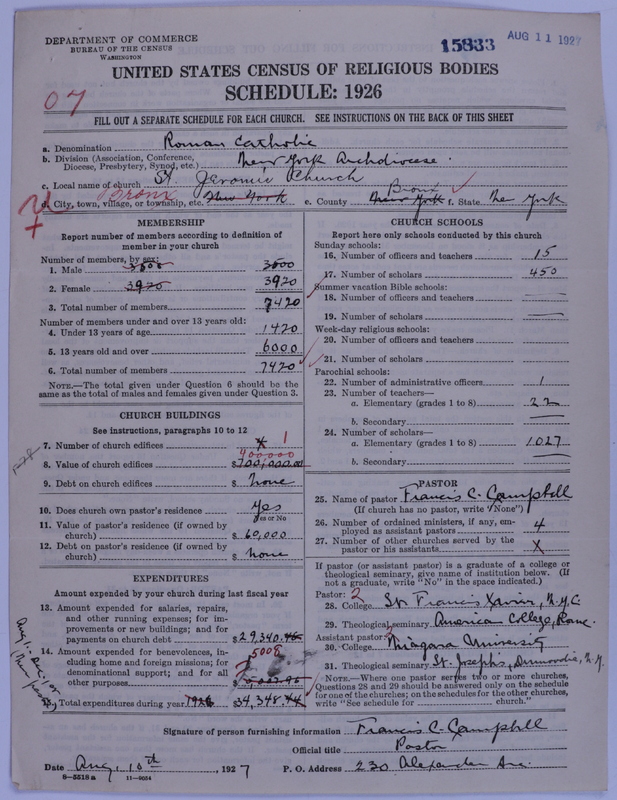 DEPARTMENT OF COMMERCE
BUREAU OF THE CENSUS
WASHINGTON
15833
AUG 11 1927
UNITED STATES CENSUS OF RELIGIOUS BODIES
SCHEDULE: 1926
07
FILL OUT A SEPARATE SCHEDULE FOR EACH CHURCH. SEE INSTRUCTIONS ON THE BACK OF THIS SHEET
a. Denomination Roman Catholic
b. Division (Association, Conference, Diocese, Presbytery, Synod, etc.) New York Archdiocese.
c. Local name of church St. Jeromis Church
d. City, town, village, or township, etc. Bronx New York e. County Bronx New York f. State New York
MEMBERSHIP
Report number of members according to definition of
member in your church
Number of members, by sex:
1. Male 3500 3500
2. Female 3920 3920
3. Total number of members 7420
Number of members under and over 13 years old:
4. Under 13 years of age 1420
5. 13 years old and over 6000
6. Total number of members 7420
NOTE.—The total given under Question 6 should be
same as the total of males and females given under Question 3.
CHURCH BUILDINGS
See instructions, paragraphs 10 to 12
7. Number of church edifices 1
400000
8. Value of church edifices $700,000.00
9. Debt on church edifices $ none
10. Does church own pastor's residence yes
Yes or No
11. Value of pastor's residence (if owned by
church) $ 60,000
12. Debt on pastor's residence (if owned by
church) $ none
EXPENDITURES
Amount expended by your church during last fiscal year
13. Amount expended for salaries, repairs,
and other running expenses; for im-
provements or new buildings; and for
payments on church debt $29,340.
5008
14. Amount expended for benevolences, in-
cluding home and foreign missions; for
denominational support; and for all
other purposes $
15. Total expenditures during year 1926 $34,348.44
CHURCH SCHOOLS
Report here only schools conducted by this church
Sunday schools:
16. Number of officers and teachers 15
17. Number of scholars 450
Summer vacation Bible schools:
18. Number of officers and teachers —
19. Number of scholars —
Week-day religious schools:
20. Number of officers and teachers
21. Number of scholars
Parochial schools:
22. Number of administrative officers 1
23. Number of teachers—
a. Elementary (grades 1 to 8) 22
b. Secondary —
24. Number of scholars—
a. Elementary (grades 1 to 8) 1027
b. Secondary —
PASTOR
25. Name of pastor Francis C. Campbell
(If church has no pastor, write "None")
26. Number of ordained ministers, if any, em-
ployed as assistant pastors 4
27. Number of other churches served by the
pastor or his assistants X
If pastor (or assistant pastor) is a graduate of a college or
theological seminary, give name of institution below. (If
not a graduate, write "No" in the space indicated.)
Pastor: 2
28. College St. Francis Xavier, N.Y.C.
29. Theological seminary American College, Rome
Assistant pastor:
30. College Niagara University
31. Theological seminary St. Joseph's, Dunwoodie, N.Y.
NOTE.—Where one pastor serves two or more churches,
Questions 28 and 29 should be answered only on the schedule
for one of the churches; on the schedules for the other churches,
write "See schedule for church."
Signature of person furnishing information Francis C. Campbell
Official title Pastor
Date Aug. 10th, 1927 P. O. Address 230 Alexander Ave.
8—5518a 11—9054